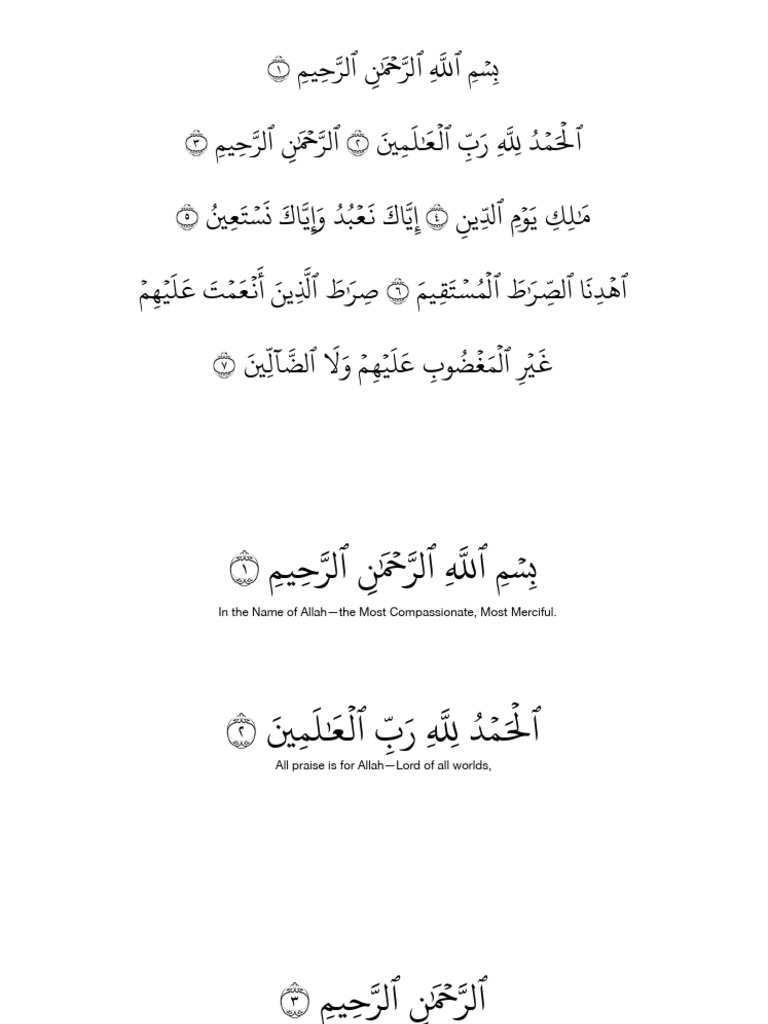 بِسْمِ ٱللَّهِ ٱلرَّحْمَـٰنِ ٱلرَّحِيمِ ١
ٱلْحَمْدُ لِلَّهِ رَبِّ ٱلْعَـٰلَمِينَ ٢ ٱلرَّحْمَـٰنِ ٱلرَّحِيمِ ٣
مَـٰلِكِ يَوْمِ ٱلدِّينِ ٤ إِيَّاكَ نَعْبُدُ وَإِيَّاكَ نَسْتَعِينُ ٥
ٱهْدِنَا ٱلصِّرَٰطَ ٱلْمُسْتَقِيمَ ٦ صِرَٰطَ ٱلَّذِينَ أَنْعَمْتَ عَلَيْهِمْ
غَيْرِ ٱلْمَغْضُوبِ عَلَيْهِمْ وَلَا ٱلضَّآلِّينَ ٧
بِسْمِ ٱللَّهِ ٱلرَّحْمَـٰنِ ٱلرَّحِيمِ ١
In the Name of Allah—the Most Compassionate, Most Merciful.
ٱلْحَمْدُ لِلَّهِ رَبِّ ٱلْعَـٰلَمِينَ ٢
All praise is for Allah—Lord of all worlds,
ٱلرَّحْمَـٰنِ ٱلرَّحِيمِ ٣